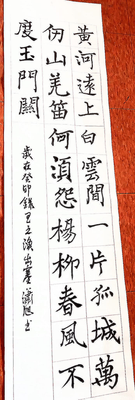 黃河遠上白雲間一片孤城萬
仞山羌笛何須怨楊柳春風不
度玉門關
歲在癸卯錄王之渙出塞